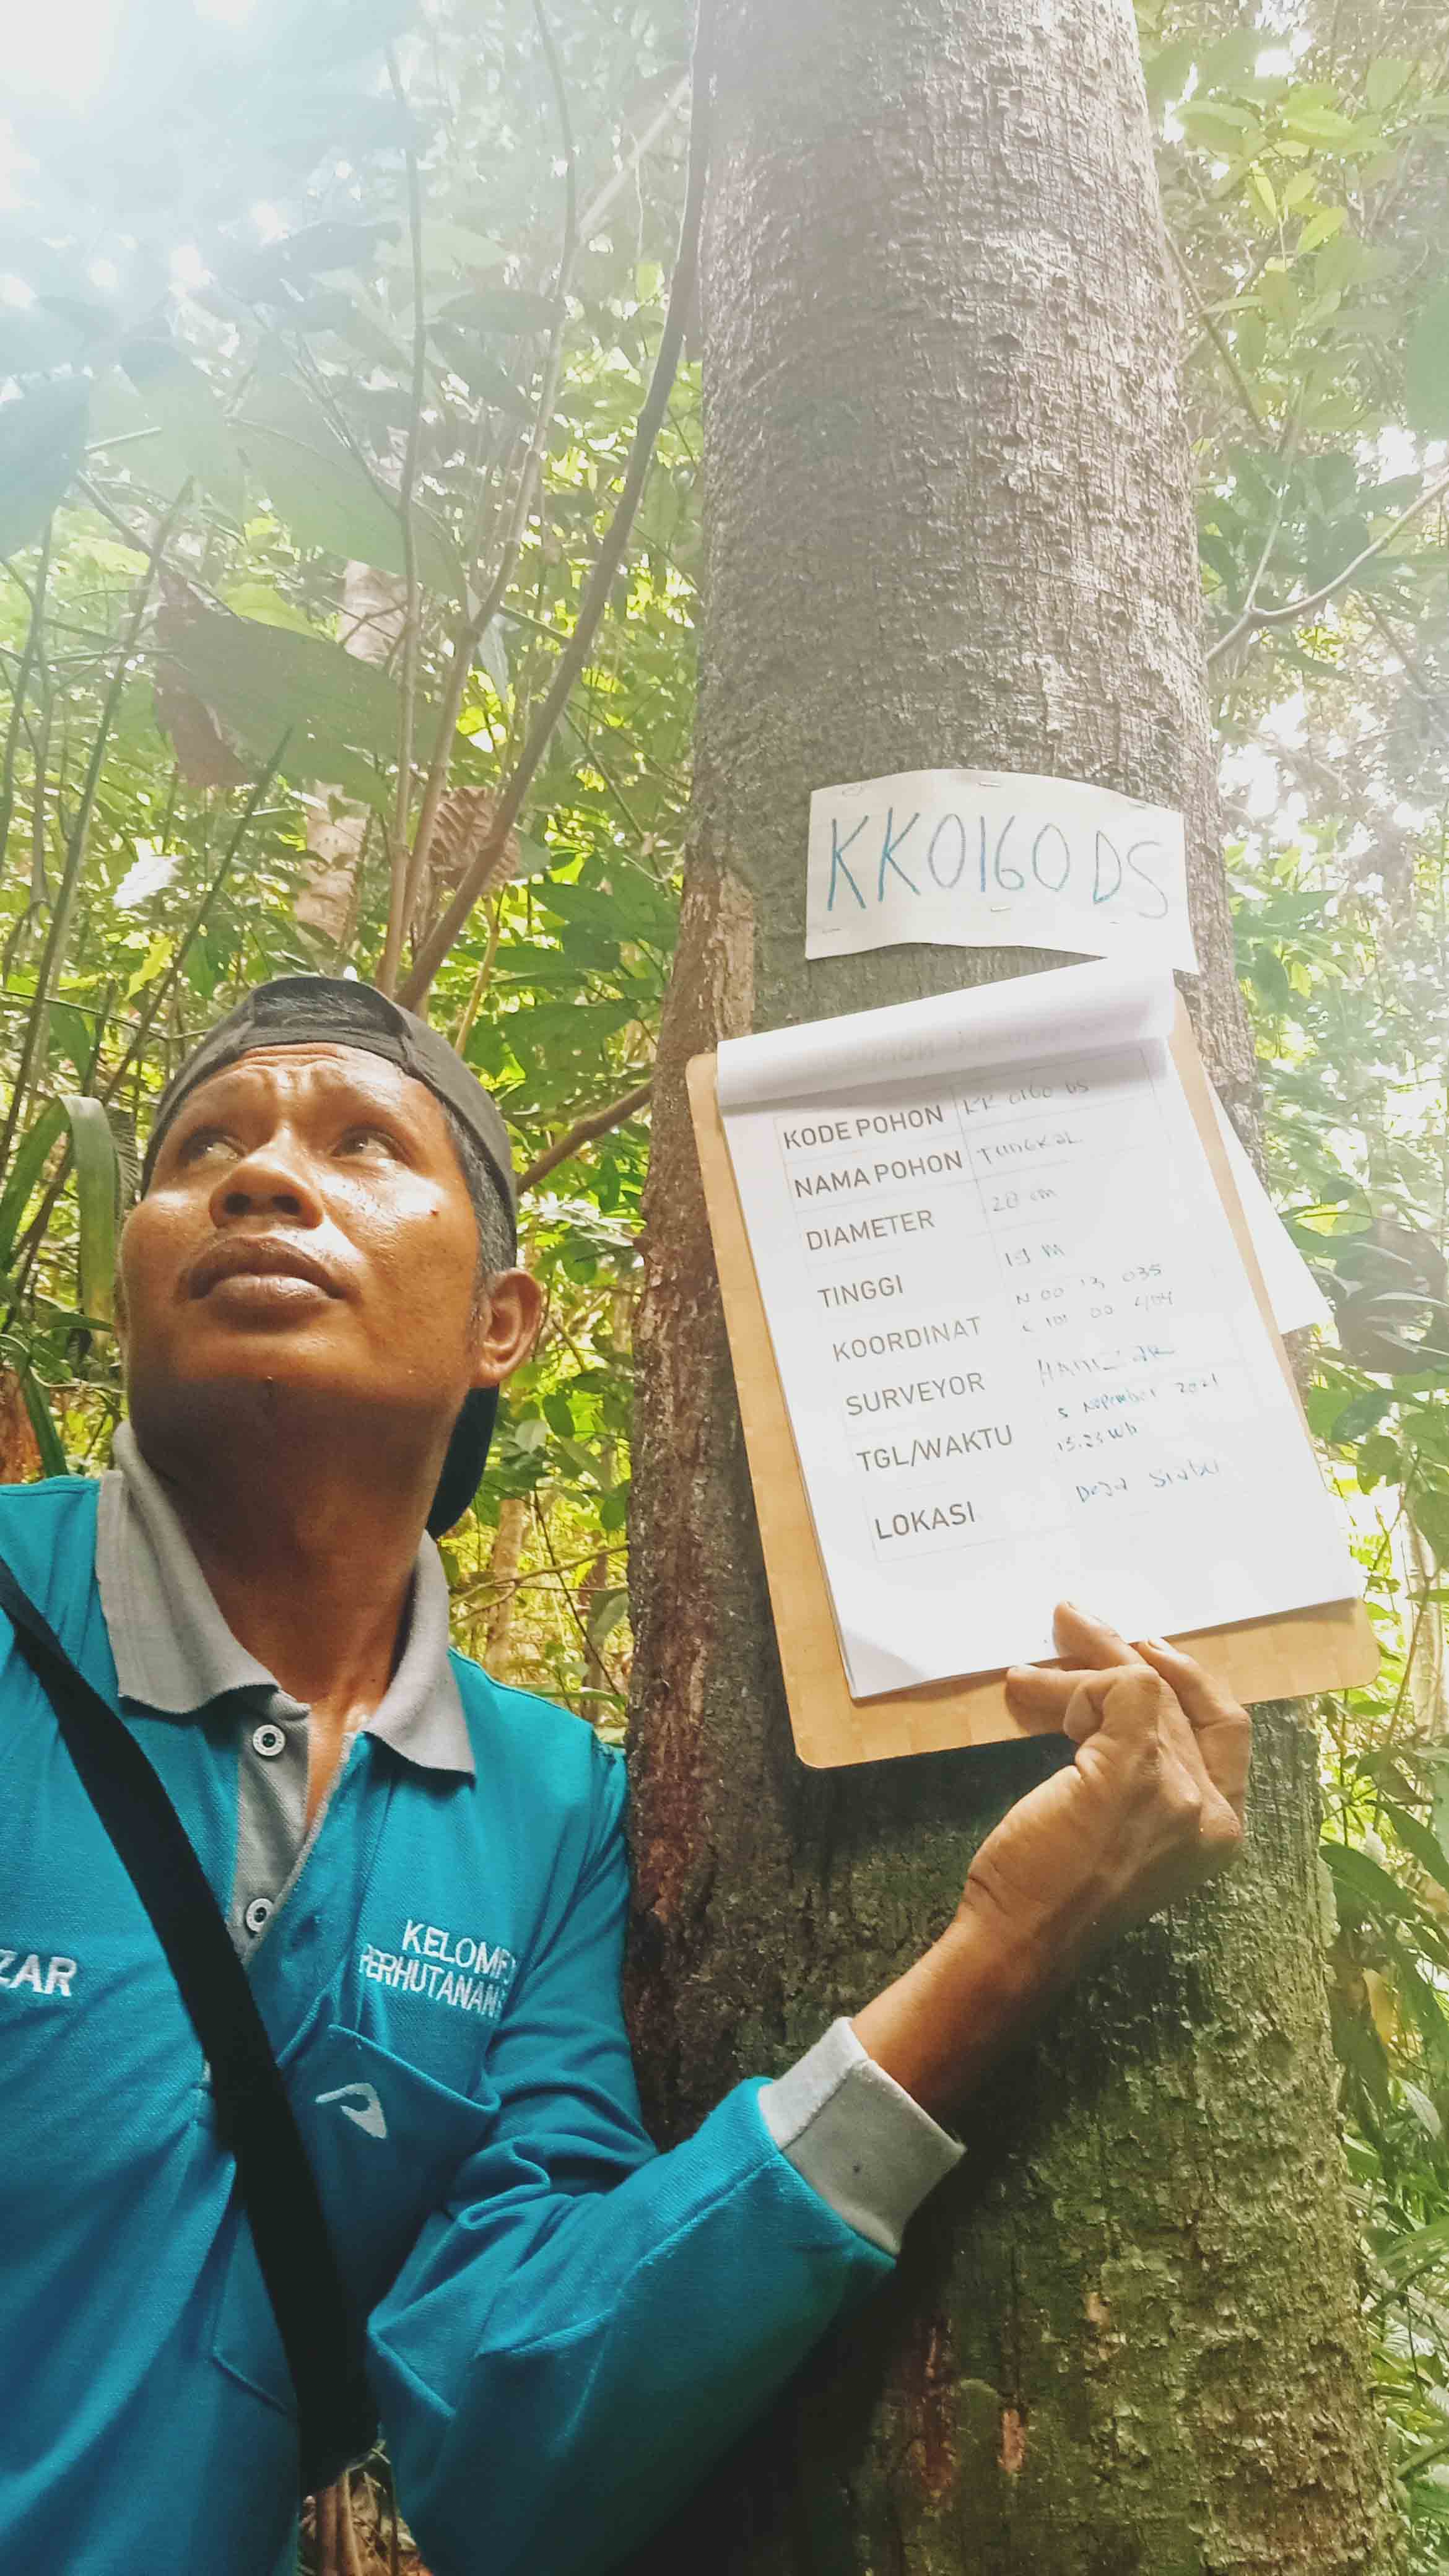 KK0160 DS
KODE POHON KK 0160 DS
NAMA POHON TUNGKAL
DIAMETER 28 cm
TINGGI 19 M
KOORDINAT N 00 13, 035
E 101 00 404
SURVEYOR HAMIZAR
TGL/WAKTU 5 November 2021
15.23 Wib
LOKASI Desa
ZAR
KELOMP
PERHUTANAN